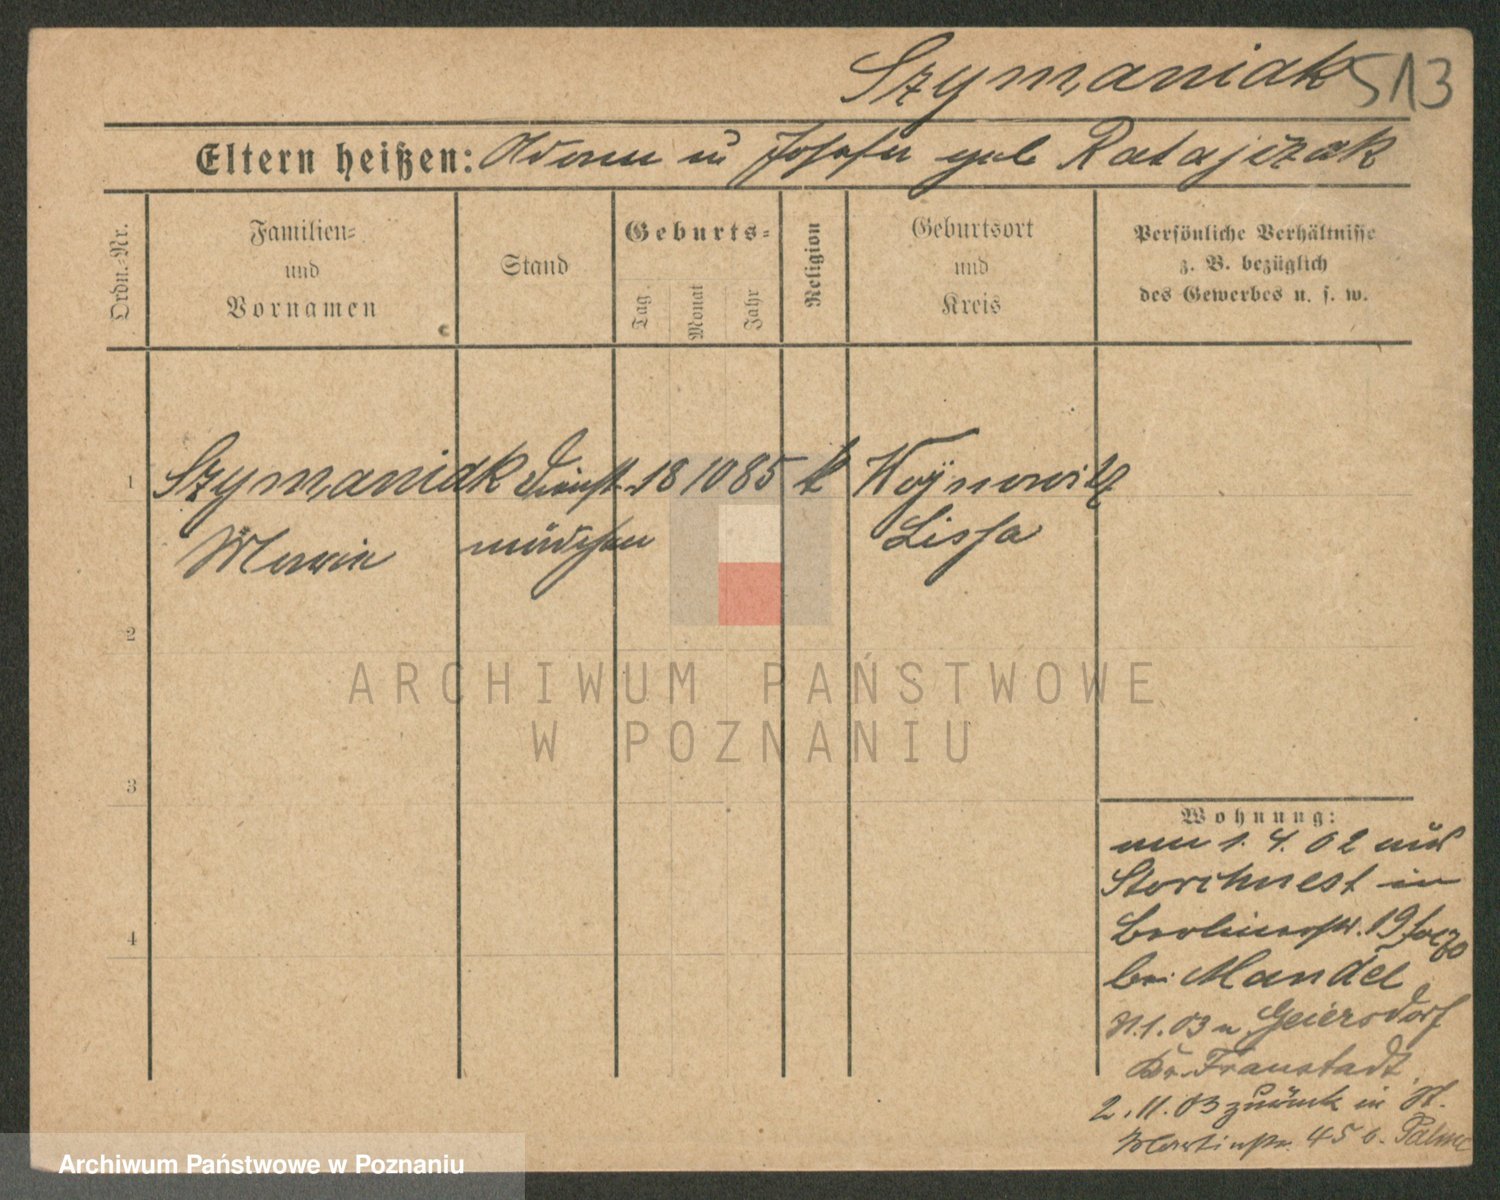 Szymaniak 513
Eltern heißen: Adam u Josefa geb Ratajczak
Ordn.-Nr.
Familien-
und
Vornamen
Stand
Geburts-
Tag
Monat
Jahr
Religion
Geburtsort
und
Kreis
Persönliche Verhältnisse
z. B. bezüglich
des Gewerbes u. s. w.
1 Szymaniak Dienst- 18 10 85 k Woÿnowitz
Maria mädchen Lissa
2
3
4
Wohnung:
am 1. 4. 02 aus
Storchnest in
Berlinerstr. 19
bei Mandel
1. 03 n Geiersdorf
Kr. Fraustadt
2. 11. 03 zurück in St.
Martinstr. 45 b.
ARCHIWUM PAŃSTWOWE
W POZNANIU
Archiwum Państwowe w Poznaniu